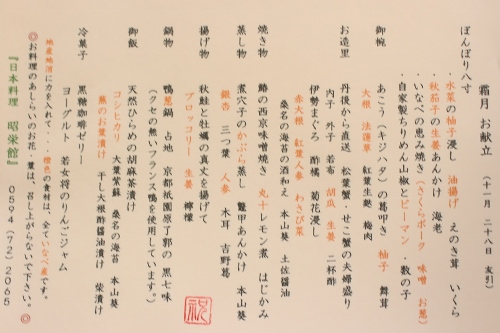 霜月 お献立　（十一月 二十八日 友引）
ぼんぼり八寸
・水菜の柚子浸し 油揚げ えのき茸 いくら
・秋茄子の生姜あんかけ 海老
・いなべの恵み焼き（さくらポーク 味噌 お葱）
・自家製ちりめん山椒とピーマン ・数の子
御椀 あこう（キジハタ）の葛叩き 柚子 舞茸
大根 法蓮草 紅葉生麩 梅肉
お造里 丹後から直送 松葉蟹・せこ蟹の夫婦盛り
内子 外子 若布 胡瓜 生姜 二杯酢
伊勢まぐろ 酢橘 菊花浸し
桑名の海苔の酒和え 本山葵 土佐醤油
赤大根 紅葉人参 わさび菜
焼き物 鰆の西京味噌焼き 丸十レモン煮 はじかみ
蒸し物 煮穴子のかぶら蒸し 鼈甲あんかけ 本山葵
銀杏 三つ葉 人参 木耳 吉野葛
揚げ物 秋鮭と牡蠣の真丈を揚げて
ブロッコリー 生姜 檸檬
鍋物 鴨葱鍋 占地 京都祇園原了郭の黒七味
（クセの無いフランス鴨を使用しています。）
御飯 天然ひらめの胡麻茶漬け
コシヒカリ 大葉紫蘇 桑名の海苔 本山葵
蕪のお葉漬け 干し大根酢醤油漬け 柴漬け
冷菓子 黒糖珈琲ゼリー
ヨーグルト 若女将のりんごジャム
地産地消に力を入れて・・・橙色の食材は、全ていなべ産です。
◎お料理のあしらいのお花・葉は、召し上がらないで下さい。◎
『日本料理 昭栄館』 0594（72）2065
祝